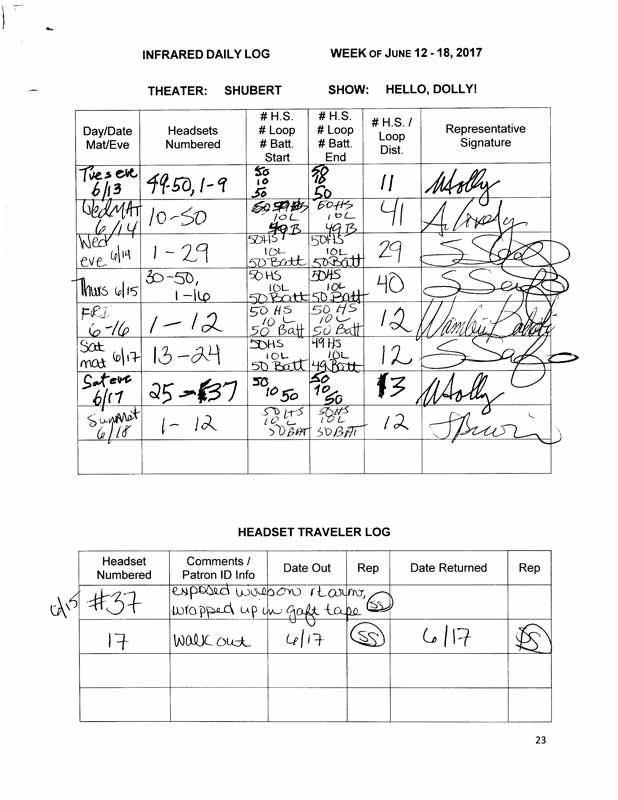 INFRARED DAILY LOG WEEK OF JUNE 12 - 18, 2017
THEATER: SHUBERT SHOW: HELLO, DOLLY!
Day/Date Mat/Eve Headsets Numbered # H.S. # Loop # Batt. Start # H.S. # Loop # Batt. End # H.S. / Loop Dist. Representative Signature
Tues eve 6/13 49-50, 1-9 50 10 50 50 10 50 11 Holly
Wed MAT 6/14 10-50 50 HS 10L 49B 50HS 10L 49B 41
Wed eve 6/14 1-29 50HS 10L 50 Batt 50HS 10L 50 Batt 29
Thurs 6/15 30-50, 1-16 50 HS 10L 50 Batt 50HS 10L 50 Batt 40
FRI 6-16 1-12 50 HS 10 L 50 Batt 50 HS 10 L 50 Batt 12
Sat mat 6/17 13-24 50HS 10L 50 Batt 49 HS 10L 49 Batt 12
Sat eve 6/17 25-37 50 10 50 50 10 50 13 Holly
Sun Mat 6/18 1-12 50 HS 10 L 50 BAT 50HS 10L 50 BAT 12
HEADSET TRAVELER LOG
Headset Numbered Comments / Patron ID Info Date Out Rep Date Returned Rep
6/15 #37 exposed wires on rt arm, wrapped up in gaff tape SS
17 walk out 6/17 SS 6/17 SS
23